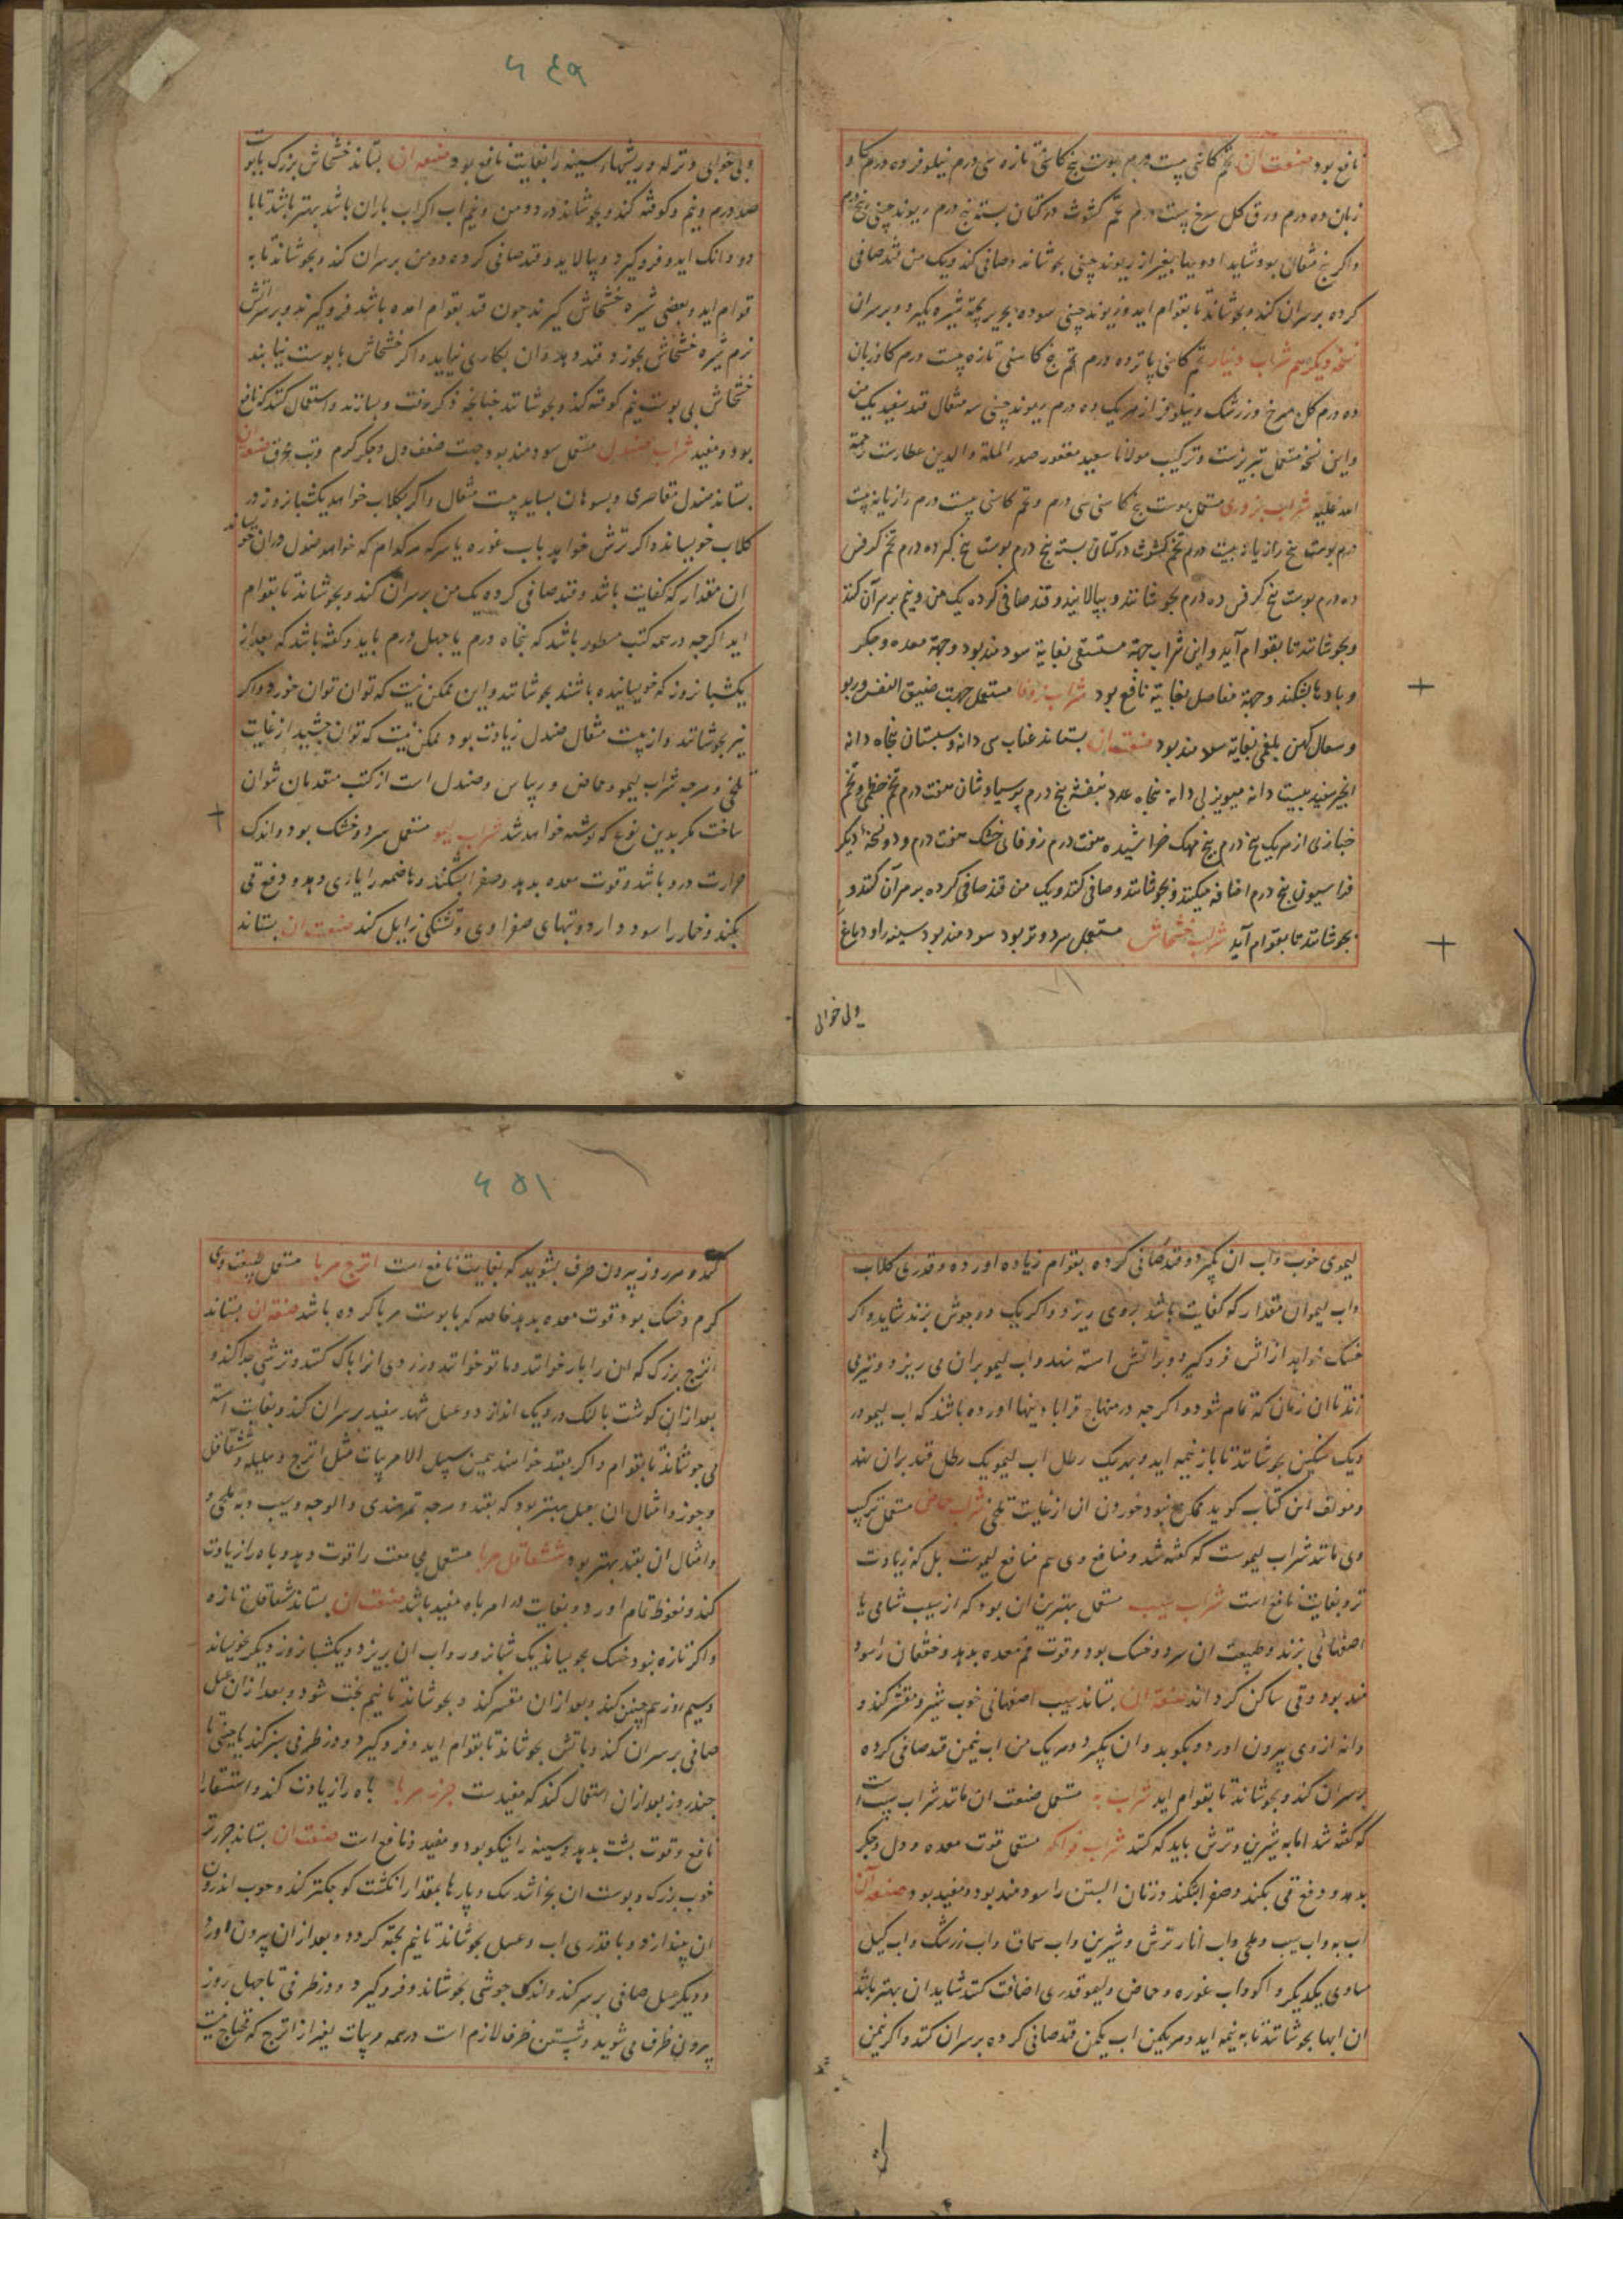 نافع بود صنعت آن تخم کاسنی بیست درم پوست بیخ کاسنی تازه سی درم نیلوفر ده درم کاو
زبان ده درم ورق کل سرخ بیست درم تخم کشوث در کتان بسته پنج درم ریوند چینی پنج درم
واکر پنج مثقال بود شاید ادویها بغیر از ریوند چینی بجوشانند و صافی کنند و یک من قند صافی
کرده بر سران کنند و بجوشانند تا بقوام اید و ریوند چینی سوده بحریر پخته شیره بکیرد و بر سران
نسخه دیکر هم شراب دینار تخم کاسنی پانزده درم تخم بیخ کاسنی تازه بیست درم کاوزبان
ده درم کل سرخ و زرشک و نیلوفر از هر یک ده درم ریوند چینی سه مثقال قند سفید یک من
و این نسخه مستعمل تبریزست و ترکیب مولانا سعید مغفور صدر الملة والدین عطارست رحمة
الله علیه شراب بزوری مستعمل پوست بیخ کاسنی سی درم و تخم کاسنی بیست درم رازیانه بیست
درم پوست بیخ رازیانه بیست درم تخم کشوث در کتان بسته پنج درم پوست بیخ کبر ده درم تخم کرفس
ده درم پوست بیخ کرفس ده درم بجوشانند و بپالایند و قند صافی کرده یک من و نیم بر سر آن کنند
و بجوشانند تا بقوام آید و این شراب جهة مستسقی بغایة سودمند بود وجهة معده و جکر
و بادها بشکند وجهة مفاصل بغایة نافع بود شراب زوفا مستعمل جهت ضیق النفس و ربو
و سعال کهن بلغمی بغایة سودمند بود صنعت ان بستانند عناب سی دانه و سبستان پنجاه دانه
انجیر سفید بیست دانه مویز بی دانه پنجاه عدد بنفشه پنج درم پرسیاوشان هفت درم تخم خطمی و تخم
خبازی از هر یک پنج درم بیخ مهک خراشیده هفت درم زوفای خشک هفت درم و دو نسخه دیکر
فراسیون پنج درم اضافه میکنند و بجوشانند و صافی کنند و یک من قند صافی کرده بر سر آن کنند و
بجوشانند تا بقوام آید شراب خشخاش مستعمل سرد و تر بود سودمند بود سینه را و دماغ
وبی خوابی
۶۴۹
وبی خوابی و نزله و ریشهاء سینه را بغایت نافع بود صنعة ان بستانند خشخاش بزرک با پوست
صد درم و نیم و کوفته کند و بجوشانند در دو من و نیم اب اکر اب باران باشد بهتر باشد تا با
دو دانک اید و فروکیرد و بپالاید و قند صافی کرده دو من بر سران کند و بجوشاند تا به
قوام اید و بعضی شیره خشخاش کیرند چون قند بقوام امده باشد فروکیرند و بر سر آتش
نرم شیره خشخاش بخورد قند دهند و ان بکاری نیاید و اکر خشخاش با پوست نیابند
خشخاش بی پوست نیم کوفته کند و بجوشانند چنانچه ذکر رفت و بسازند و استعمال کنند که نافع
بود و مفید شراب صندل مستعمل سودمند بود جهت ضعف دل و جکر کرم و تب محرق صنعة ان
بستاند صندل مقاصری و بسوهان بساید بیست مثقال و اکر بکلاب خواهد یکشبانروز در
کلاب خویساند و اکر ترش خواهد باب غوره یا سرکه هرکدام که خواهد صندل دران خویساند
ان مقدار که کفایت باشد و قند صافی کرده یک من بر سران کند و بجوشاند تا بقوام
اید اکرچه در همه کتب مسطور باشد که پنجاه درم یا چهل درم باید و کفته باشد که بعد از
یکشبانروز که خویسانیده باشند بجوشانند و این ممکن نیست که توان توان خورد و اکر
نیز بجوشانند و از بیست مثقال صندل زیادت بود ممکن نیست که توان چشید از غایت
تلخی و هرچه شراب لیمو و حماض و ریباس و صندل است از کتب متقدمان نتوان
ساخت مکر بدین نوع که نوشته خواهد شد شراب لیمو مستعمل سرد و خشک بود و اندک
حرارت درو باشد و قوت معده بدهد و صفرا بشکند و هاضمه را یاری دهد و دفع قی
بکند و خمار را سود دارد و تبهای صفراوی و تشنکی زایل کند صنعت ان بستاند
لیموی خوب و اب ان بکیرد و قند صافی کرده بقوام زیاده اورده و قدری کلاب
و اب لیمو ان مقدار که کفایت باشد بروی ریزد و اکر یک دو جوش بزند شاید و اکر
خشک خواهد از اتش فروکیرد و بر اتش استه نهد و اب لیمو بران می ریزد و تیز می
زند تا ان زمان که تمام شود و اکرچه در منهاج قرابادینها اورده باشد که اب لیمو در
دیک سنکین بجوشانند تا باز نیمه اید و بهر یک رطل اب لیمو یک رطل قند بران نهند
و مولف این کتاب کوید ممکن نبود خوردن ان از غایت تلخی شراب حماض مستعمل ترکیب
وی مانند شراب لیموست که کفته شد و منافع وی هم منافع لیموست بل که زیادت
تر و بغایت نافع است شراب سیب مستعمل بهترین ان بود که از سیب شامی یا
اصفهانی بزند و طبیعت ان سرد و خشک بود و قوت فم معده بدهد و خفقان را سود
مند بود و قی ساکن کرداند صنعة ان بستاند سیب اصفهانی خوب شیرین و مقشر کند و
دانه از وی بیرون اورد و بکوبد و ان بکیرد و هر یک من اب نیمن قند صافی کرده
بر سران کند و بجوشاند تا بقوام اید شراب به مستعمل صنعت ان مانند شراب سیب است
که کفته شد اما به شیرین و ترش باید که کنند شراب فواکه مستعمل قوت معده و دل و جکر
بدهد و دفع قی بکند و صفرا بشکند و زنان ابستن را سودمند بود و مفید بود صنعة آن
اب به و اب سیب و ملچی و اب انار ترش و شیرین و اب سماق و اب زرشک و اب کیل
مساوی یکدیکر و اکر اب غوره و حماض و لیمو قدری اضافت کنند شاید ان بهتر باشد
ان ابها بجوشانند تا به نیمه اید و هر یکمن اب یکمن قند صافی کرده بر سران کنند و اکر نیمن
۶۵۱
کند و هر روز بیرون ظرف بشوید که بغایت نافع است اترج مربا مستعمل طبیعت وی
کرم و خشک بود و قوت معده بدهد خاصه که با پوست مربا کرده باشد صنعة ان بستاند
اترج بزرک که ان را بار خوانند و ماتو خوانند و زردی انرا پاک کنند و ترشی جدا کند و
بعد ازان کوشت بالنک در دیک اندازد و عسل شهد سفید بر سران کند و بغایت استه
می جوشاند تا بقوام و اکر بقند خواهند بهمین سبیل الا مربیات مثل اترج و هلیله و شقاقل
و جوز و امثال ان بعسل بهتر بود که بقند و هرچه تمرهندی و الوچه و سیب و به بلحی و
و امثال ان بقند بهتر بود شقاقل مربا مستعمل پی معنت را قوت دهد و باه را زیادت
کند و نعوظ تمام اورد و بغایت در امر باه مفید باشد صنعت ان بستاند شقاقل تازه
و اکر تازه نبود خشک بخویساند یک شبانروز و اب ان بریزد و یکشبانروز دیکر خویساند
و سیم روز هم چنین کند و بعد ازان مقشر کند و بجوشاند تا نیم پخت شود و بعد ازان عسل
صافی بر سران کند و باتش بجوشاند تا بقوام اید و فروکیرد و در ظرفی سبز کند یا چینی تا
چند روز بعد ازان استعمال کند که مفید ست جزر مربا باه را زیادت کند و استسقا را
نافع و قوت پشت بدهد و سینه را نیکو بود و مفید و نافع است صنعت ان بستاند جزر تر
خوب بزرک و پوست ان بخراشد تنک و پارها بمقدار انکشت کوچکتر کند و چوب اندرون
ان بیندازد و با قدری اب و عسل بجوشاند تا نیم پخته کردد و بعد ازان بیرون اورد
و دیکر عسل صافی بر سر کند و اندک جوشی بجوشاند و فروکیرد و در ظرفی تا چهل روز
بیرون ظرف می شوید و شستن ظرف لازم است در همه مربیات بغیر از اترج که محتاج نیست